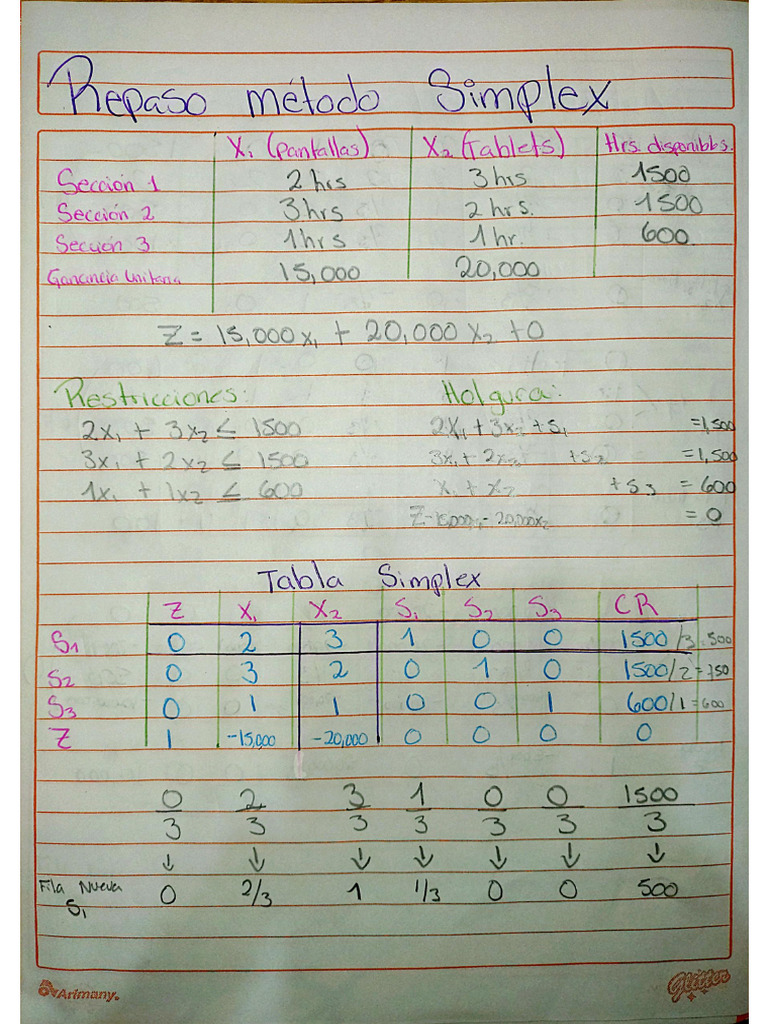 Repaso método Simplex
X₁ (pantallas) X₂ (Tablets) Hrs. disponibbs.
Sección 1 2 hrs 3 hrs 1500
Sección 2 3hrs 2 hrs. 1500
Sección 3 1hrs 1 hr. 600
Ganancia Unitaria 15,000 20,000
Z = 15,000x₁ + 20,000x₂ +0
Restricciones: Holgura:
2x₁ + 3x₂ ≤ 1500 2x₁ + 3x₂ + S₁ =1,500
3x₁ + 2x₂ ≤ 1500 3x₁ + 2x₂ +S₂ =1,500
1x₁ + 1x₂ ≤ 600 x₁ + x₂ +S3 = 600
Z-15,000x₁-20,000x₂ = 0
Tabla Simplex
Z X₁ X₂ S₁ S₂ S₃ CR
S₁ 0 2 3 1 0 0 1500/3 500
S₂ 0 3 2 0 1 0 1500/2=750
S₃ 0 1 1 0 0 1 600/1=600
Z 1 -15,000 -20,000 0 0 0 0
0 2 3 1 0 0 1500
3 3 3 3 3 3 3
↓ ↓ ↓ ↓ ↓ ↓ ↓
Fila Nueva S₁ 0 2/3 1 1/3 0 0 500
Arimany. Glitter